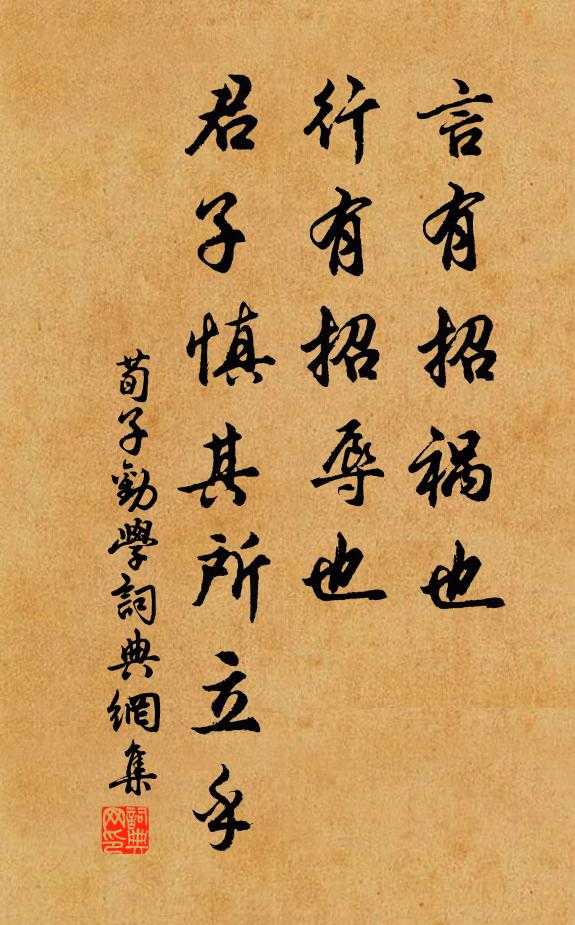 言有招祸也
行有招辱也
君子慎其所立乎
荀子勸學詞典網集
詞典
网印